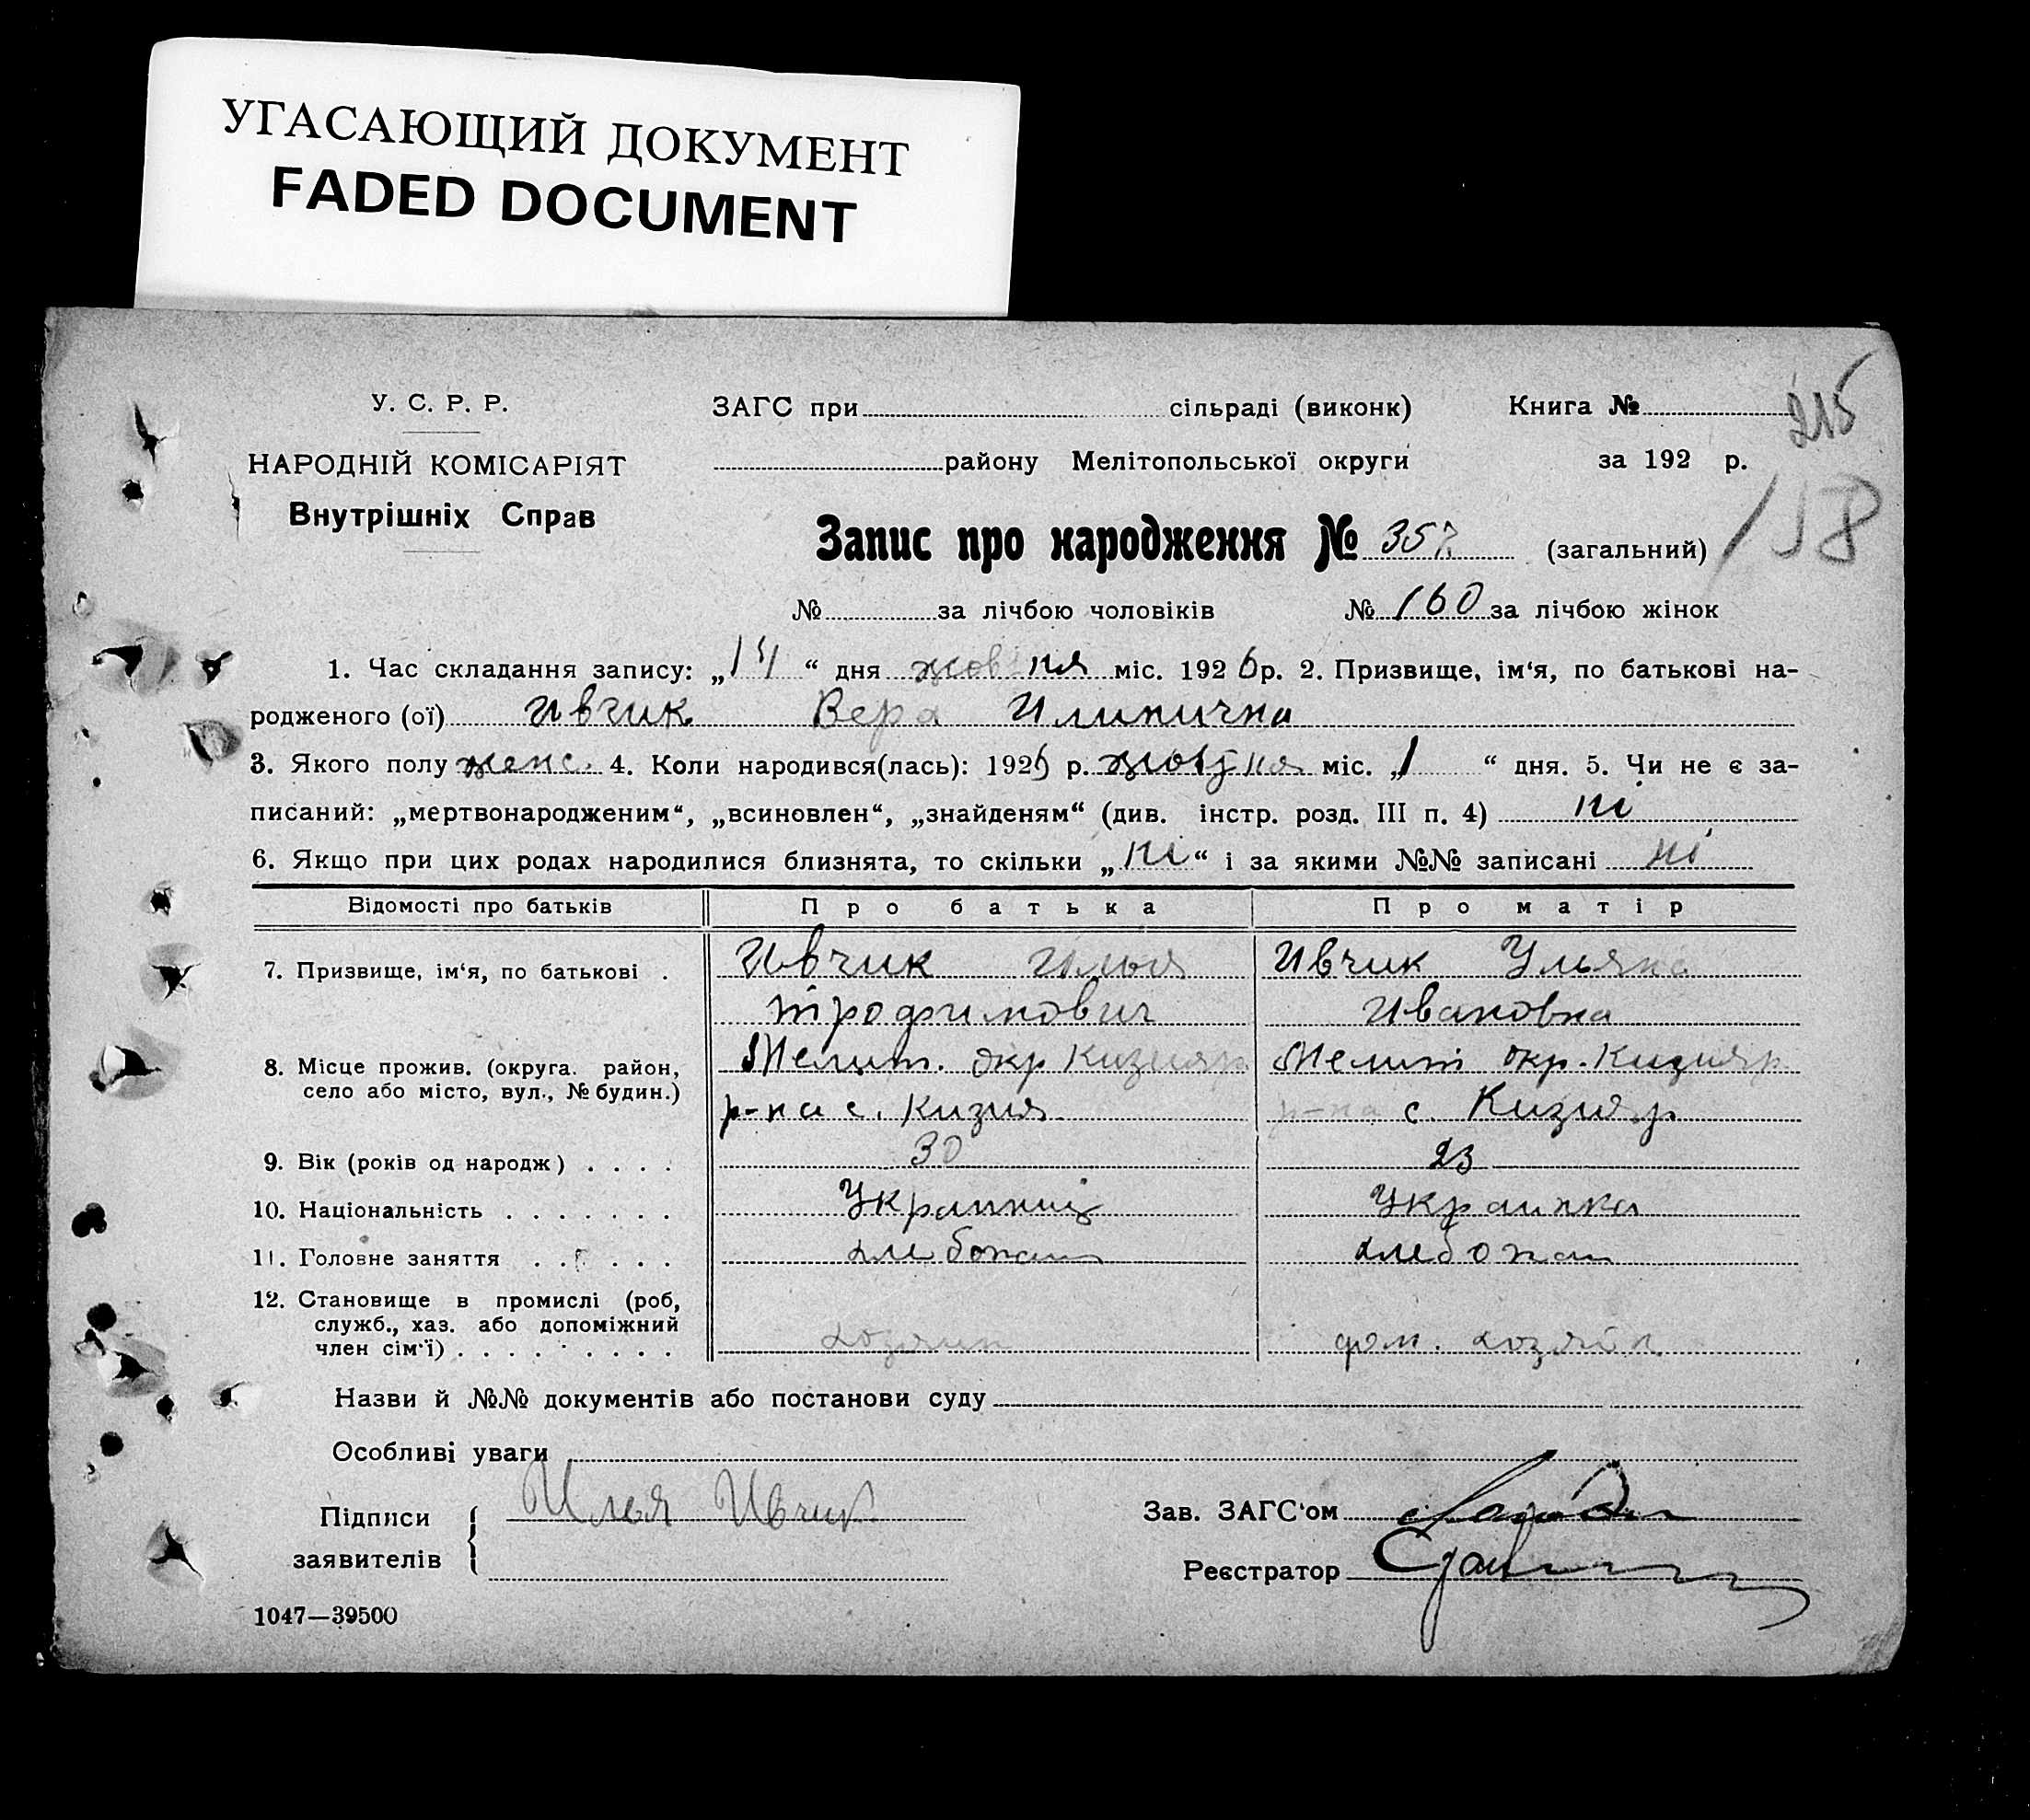 УГАСАЮЩИЙ ДОКУМЕНТ
FADED DOCUMENT
215
У. С. Р. Р.
НАРОДНІЙ КОМІСАРІЯТ
Внутрішніх Справ
ЗАГС при сільраді (виконк) Книга №
району Мелітопольської округи за 192 р.
158
Запис про народження № 357 (загальний)
№ за лічбою чоловіків № 160 за лічбою жінок
1. Час складання запису: „14“ дня жовтня міс. 1926 р. 2. Призвище, ім‘я, по батькові на-
родженого (ої) Ивчик Вера Илинична
3. Якого полу женс. 4. Коли народився(лась): 1926 р. жовтня міс. „1“ дня. 5. Чи не є за-
писаний: „мертвонародженим“, „всиновлен“, „знайденям“ (див. інстр. розд. III п. 4) ні
6. Якщо при цих родах народилися близнята, то скільки „ні“ і за якими №№ записані ні
Відомості про батьків Про батька Про матір
7. Призвище, ім‘я, по батькові . Ивчик Илья Ивчик Ульяна
Трофимович Ивановна
8. Місце прожив. (округа. район, Мелит. окр Кизияр Мелит окр. Кизияр
село або місто, вул., № будин.) р-на с. Кизия р-на с. Кизияр
9. Вік (років од народж) . . . . 30 23
10. Національність . . . . . . . Украинец Украинка
11. Головне заняття . . . . . . хлебопаш хлебопаш
12. Становище в промислі (роб,
служб., хаз. або допоміжний
член сім‘ї) . . . . . . . . . хозяин дом. хозяйк
Назви й №№ документів або постанови суду
Особливі уваги
Підписи Илья Ивчик Зав. ЗАГС‘ом
заявителів Реєстратор
1047—39500